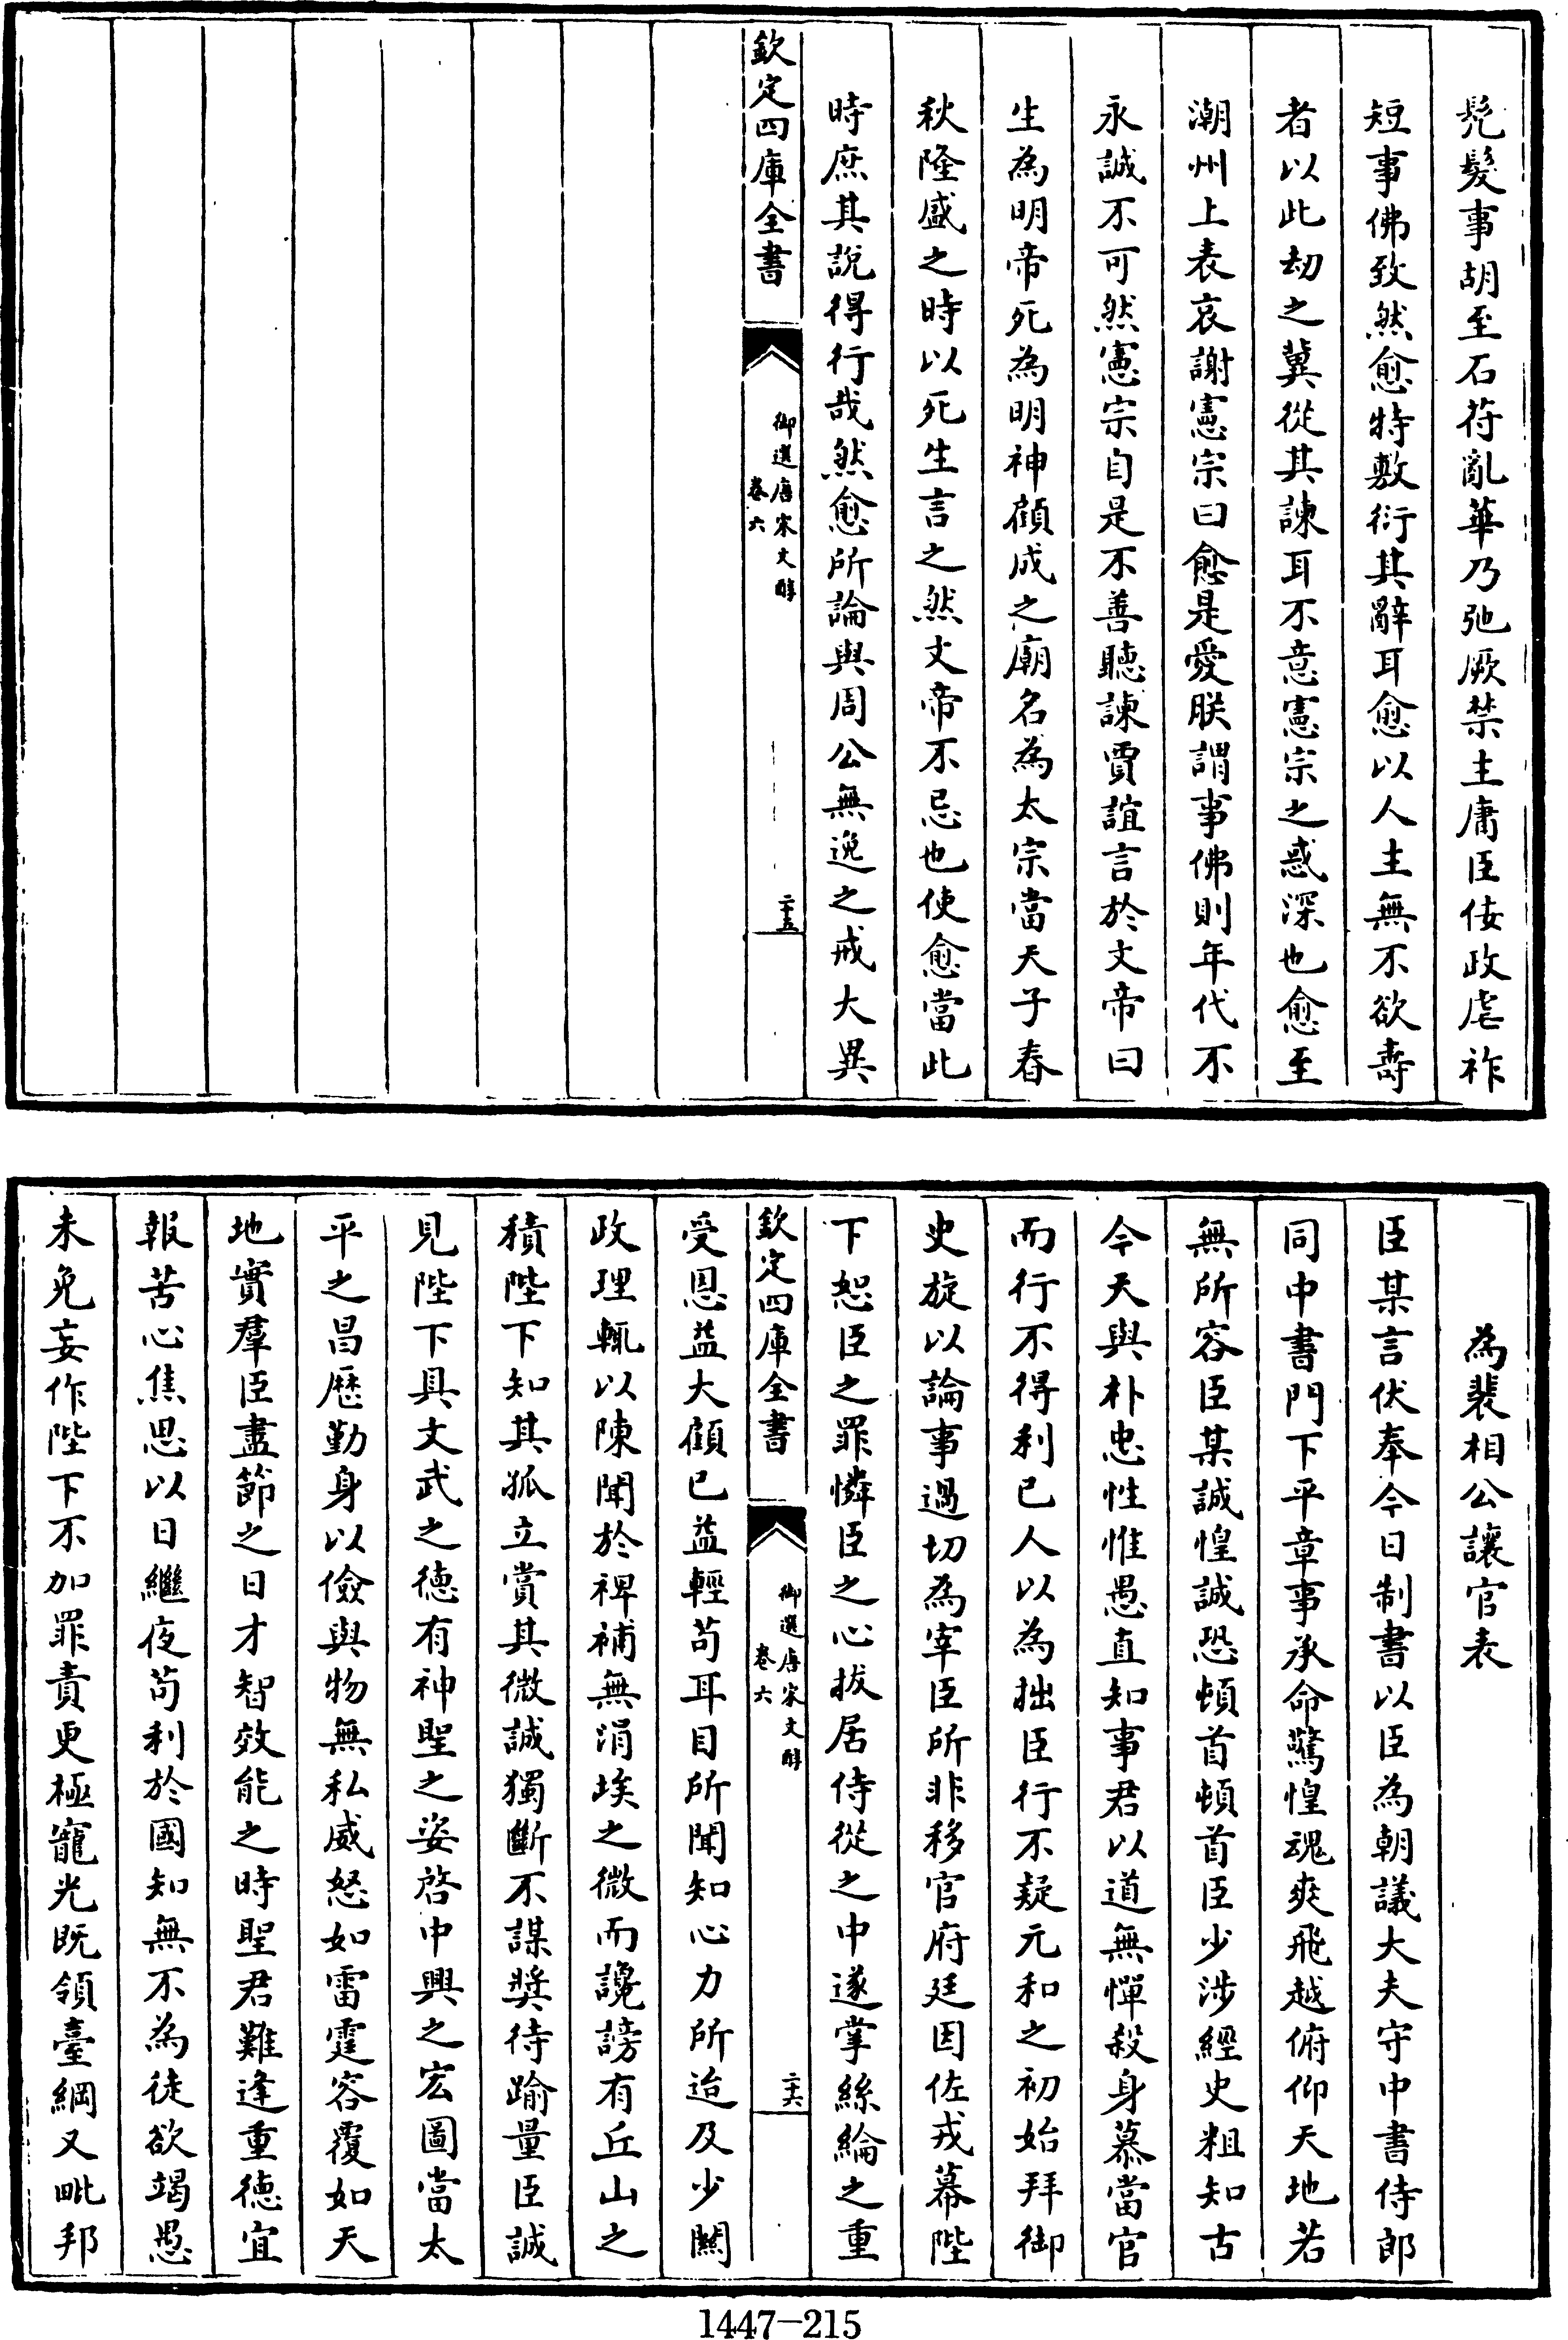 髠髮事胡至石苻亂華乃弛厥禁主庸臣佞政虐祚
短事佛致然愈特敷衍其辭耳愈以人主無不欲壽
者以此劫之冀從其諫耳不意憲宗之惑深也愈至
潮州上表哀謝憲宗曰愈是愛朕謂事佛則年代不
永誠不可然憲宗自是不善聽諫賈誼言於文帝曰
生為明帝死為明神顧成之廟名為太宗當天子春
秋隆盛之時以死生言之然文帝不忌也使愈當此
時庶其說得行哉然愈所論與周公無逸之戒大異
欽定四庫全書
御選唐宋文醇
卷六
二十五
為裴相公讓官表
臣某言伏奉今日制書以臣為朝議大夫守中書侍郎
同中書門下平章事承命驚惶魂爽飛越俯仰天地若
無所容臣某誠惶誠恐頓首頓首臣少涉經史粗知古
今天與朴忠性惟愚直知事君以道無憚殺身慕當官
而行不得利已人以為拙臣行不疑元和之初始拜御
史旋以論事過切為宰臣所非移官府廷因佐戎幕陛
下恕臣之罪憐臣之心拔居侍從之中遂掌絲綸之重
欽定四庫全書
御選唐宋文醇
卷六
二十六
受恩益大顧已益輕苟耳目所聞知心力所迨及少關
政理輒以陳聞於禆補無涓埃之微而讒謗有丘山之
積陛下知其孤立賞其微誠獨斷不謀奬待踰量臣誠
見陛下具文武之德有神聖之姿啓中興之宏圖當太
平之昌歴勤身以儉與物無私威怒如雷霆容覆如天
地實羣臣盡節之日才智效能之時聖君難逢重德宜
報苦心焦思以日繼夜苟利於國知無不為徒欲竭愚
未免妄作陛下不加罪責更極寵光既領臺綱又毗邦
1447-215